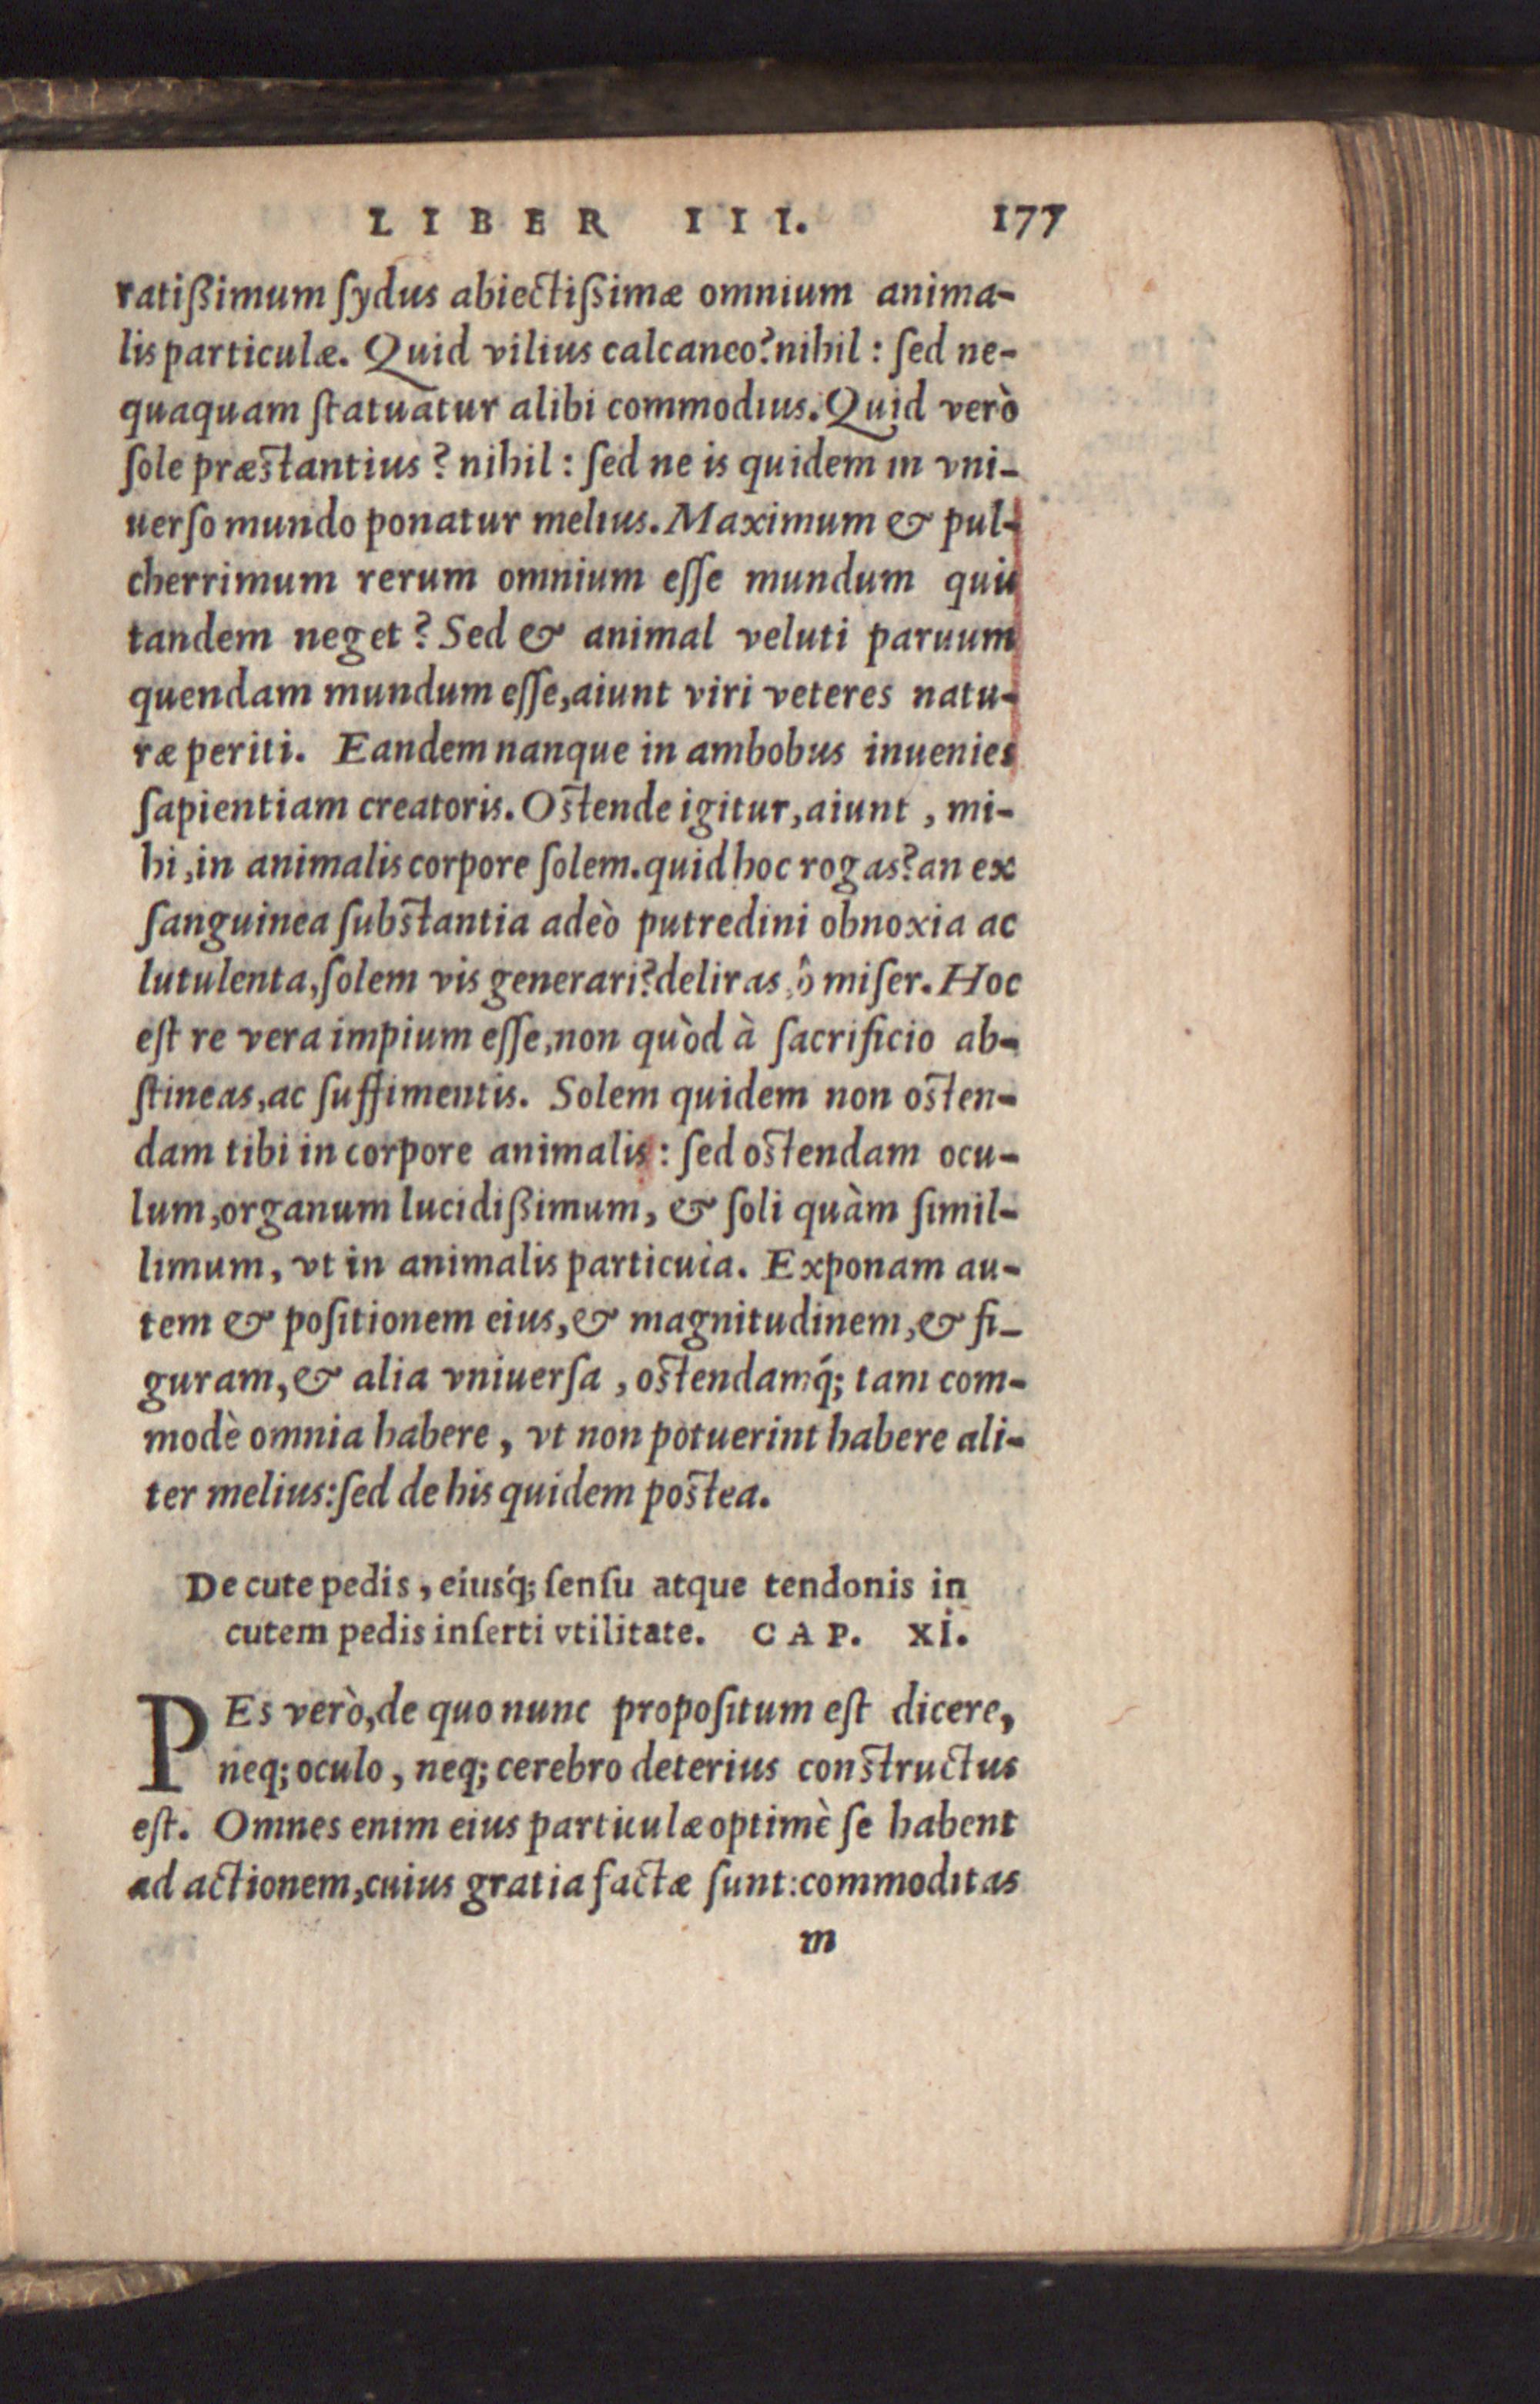 LIBER III. 177
ratißimum ſydus abiectißimæ omnium anima-
lis particulæ. Quid vilius calcaneo? nihil : ſed ne-
quaquam ſtatuatur alibi commodius. Quid verò
ſole præstantius ? nihil : ſed ne is quidem in vni-
uerſo mundo ponatur melius. Maximum & pul-
cherrimum rerum omnium eſſe mundum quis
tandem neget ? Sed & animal veluti paruum
quendam mundum eſſe, aiunt viri veteres natu-
ræ periti. Eandem nanque in ambobus inuenies
ſapientiam creatoris. Ostende igitur, aiunt , mi-
hi, in animalis corpore ſolem. quid hoc rogas? an ex
ſanguinea ſubstantia adeò putredini obnoxia ac
lutulenta, ſolem vis generari? deliras, ô miſer. Hoc
eſt re vera impium eſſe, non quòd à ſacrificio ab-
ſtineas, ac ſuffimentis. Solem quidem non osten-
dam tibi in corpore animalis : ſed ostendam ocu-
lum, organum lucidißimum, & ſoli quàm ſimil-
limum, vt in animalis particula. Exponam au-
tem & poſitionem eius, & magnitudinem, & fi-
guram, & alia vniuerſa , ostendamq́; tam com-
modè omnia habere , vt non potuerint habere ali-
ter melius: ſed de his quidem postea.
De cute pedis , eiusq́; ſenſu atque tendonis in
cutem pedis inſerti vtilitate. CAP. XI.
PEs verò, de quo nunc propoſitum eſt dicere,
neq; oculo , neq; cerebro deterius constructus
eſt. Omnes enim eius particulæ optimè ſe habent
ad actionem, cuius gratia factæ ſunt: commoditas
m